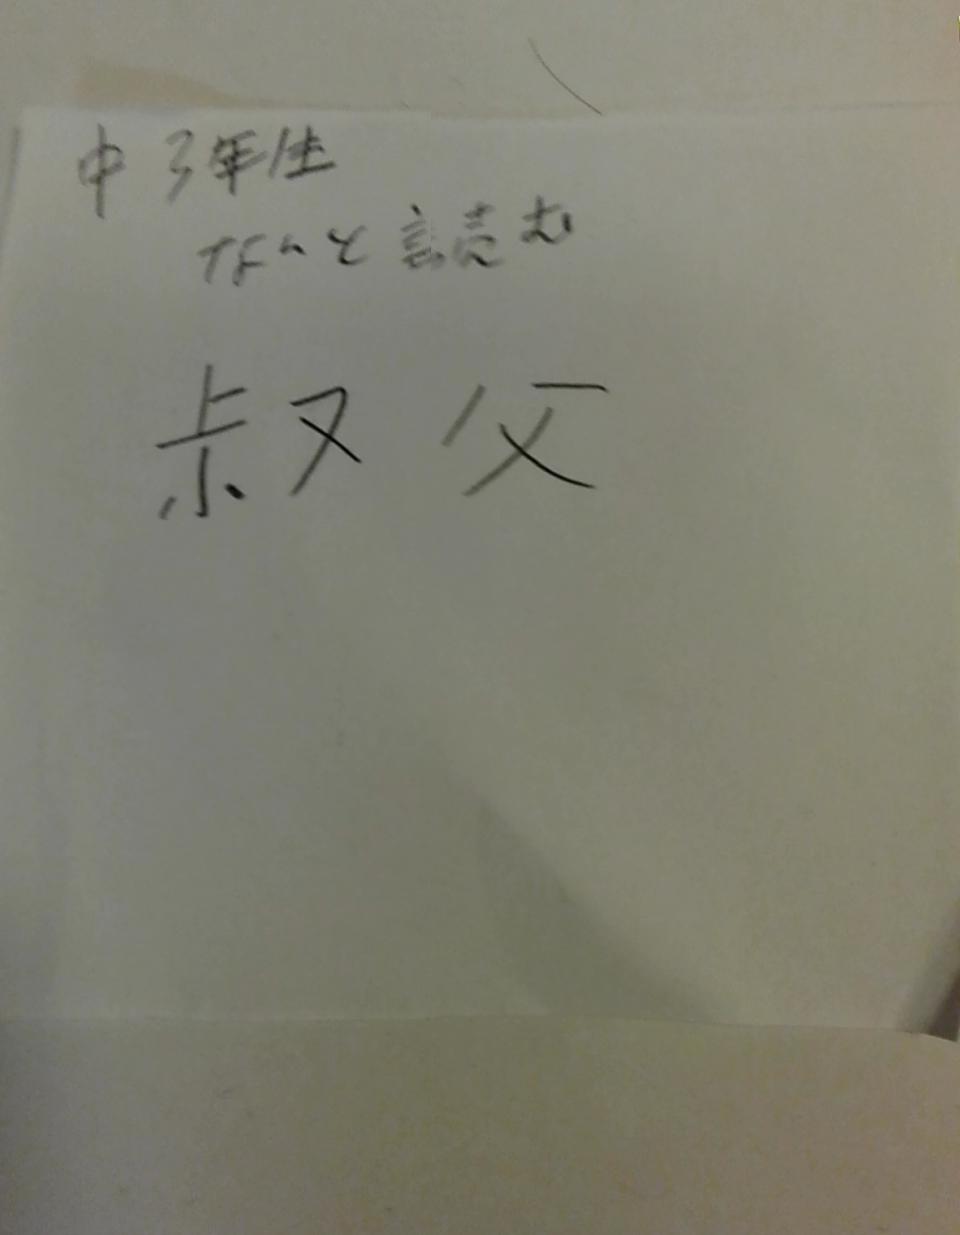 中3年生
なんと読む
叔父